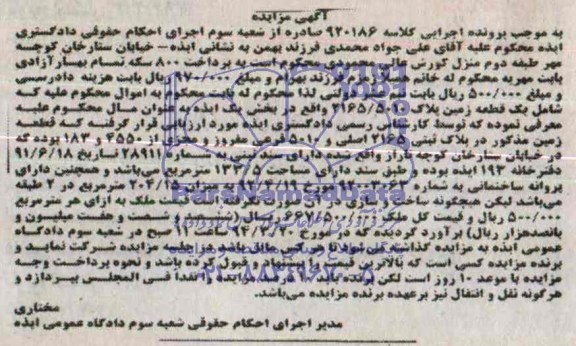 آگهی مزایده
به موجب پرونده اجرایی کلاسه ۹۲۰۱۸۶ صادره از شعبه سوم اجرای احکام حقوقی دادگستری
ایذه محکوم علیه آقای علی جواد محمدی فرزند بهمن به نشانی ایذه – خیابان ستارخان کوچه
مهر طبقه دوم منزل کورش عالی محمودی محکوم است به پرداخت ۸۰۰ سکه تمام بهار آزادی
بابت مهریه محکوم له خانم فرزند و مبلغ ریال بابت هزینه دادرسی
و مبلغ ۵۰۰/۰۰۰ ریال بابت لذا محکوم له بابت محکوم به اموال محکوم علیه که
شامل یک قطعه زمین پلاک ۲۱۶۵/۵۰۱۵ واقع در بخش یک ایذه به عنوان مال محکوم علیه
معرفی نموده که توسط کارشناس رسمی دادگستری ایذه مورد ارزیابی قرار گرفته که قطعه
زمین مذکور در پلاک ثبتی ۲۱۶۵ اصلی و ۵۰۱۵ فرعی مفروز و مجزی از ۴۵۵۰ و ۱۸۳ بوده که
در خیابان ستارخان کوچه تاراز واقع شده دارای سند ثبتی به شماره ۲۸۹۱۱ تاریخ ۹۱/۶/۱۸
دفترخانه ۱۹۳ ایذه بوده و طبق سند دارای مساحت ۱۳۳/۵ مترمربع می‌باشد و همچنین دارای
پروانه ساختمانی به شماره مورخ به میزان ۲۰۴/۱۵ مترمربع در ۲ طبقه
می‌باشد لیکن هیچگونه ساختمانی قیمت ملک به ازای هر مترمربع
۵/۰۰۰/۰۰۰ ریال و قیمت کل ملک ۶۶۷/۵۰۰/۰۰۰ ریال (ششصد و شصت و هفت میلیون و
پانصدهزار ریال) برآورد گردید مورخ ۹۴/۲/۲۰ ساعت ۱۱ صبح در شعبه سوم دادگاه
عمومی ایذه به مزایده گذاشته می‌شود تا هر کس مایل باشد در جلسه مزایده شرکت نماید و
برنده مزایده کسی است که بالاترین قیمت را پیشنهاد و قبول کرده باشد و نحوه پرداخت وجه
مزایده با موعد ۱۰ روز است لکن برنده باید ۱۰ درصد مزایده را نقدا فی المجلس بپردازد و
هرگونه نقل و انتقال نیز برعهده برنده مزایده می‌باشد.
مختاری
مدیر اجرای احکام حقوقی شعبه سوم دادگاه عمومی ایذه